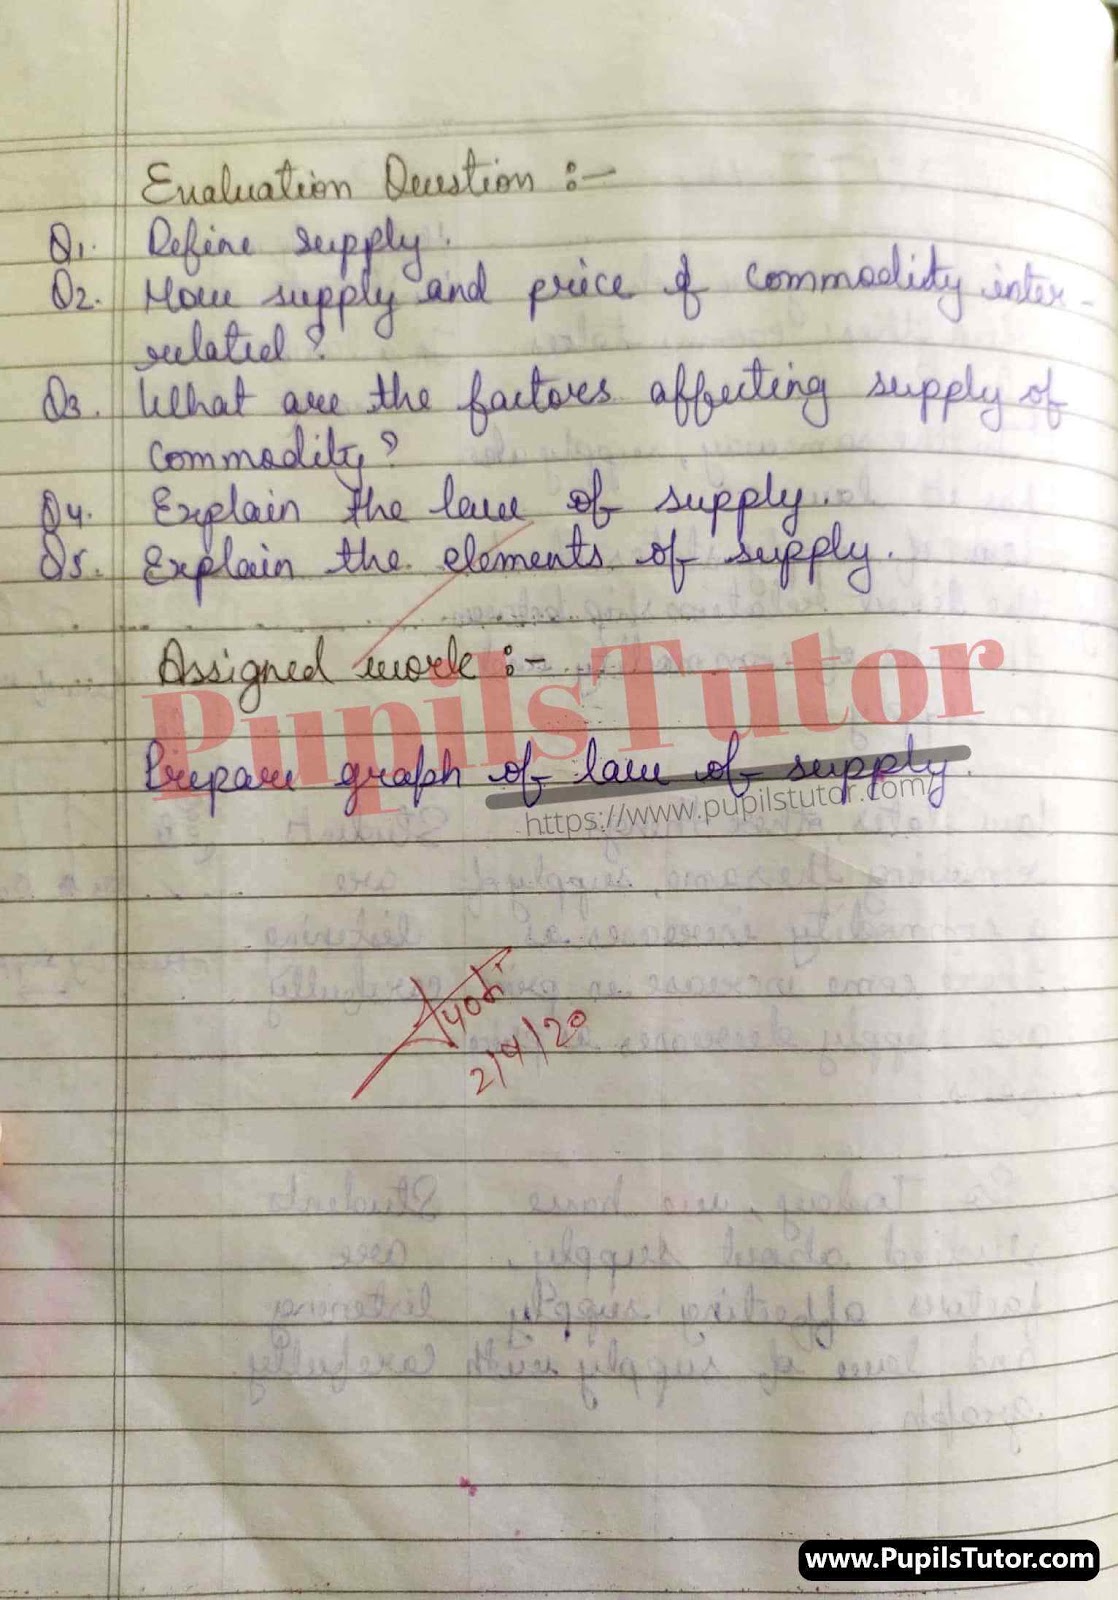 Evaluation Question :-
Q1. Define supply.
Q2. How supply and price of commodity inter-
related?
Q3. What are the factors affecting supply of
commodity?
Q4. Explain the law of supply.
Q5. Explain the elements of supply.
Assigned work :-
PupilsTutor
Prepare graph of law of supply.
https://www.pupilstutor.com
Jyoti
www.PupilsTutor.com